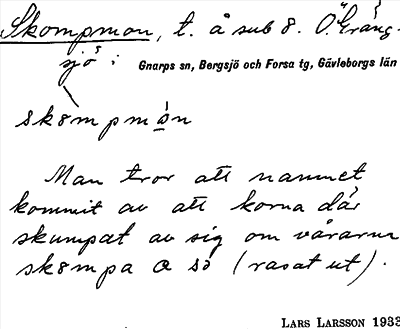 Skompmon, t. å sub 8. Ö. Gräng-
sjö i Gnarps sn, Bergsjö och Forsa tg, Gävleborgs län
skompmon
Man tror att namnet
kommit av att korna där
skumpat av sig om vårarna
skompa a så (rasat ut).
LARS LARSSON 1933